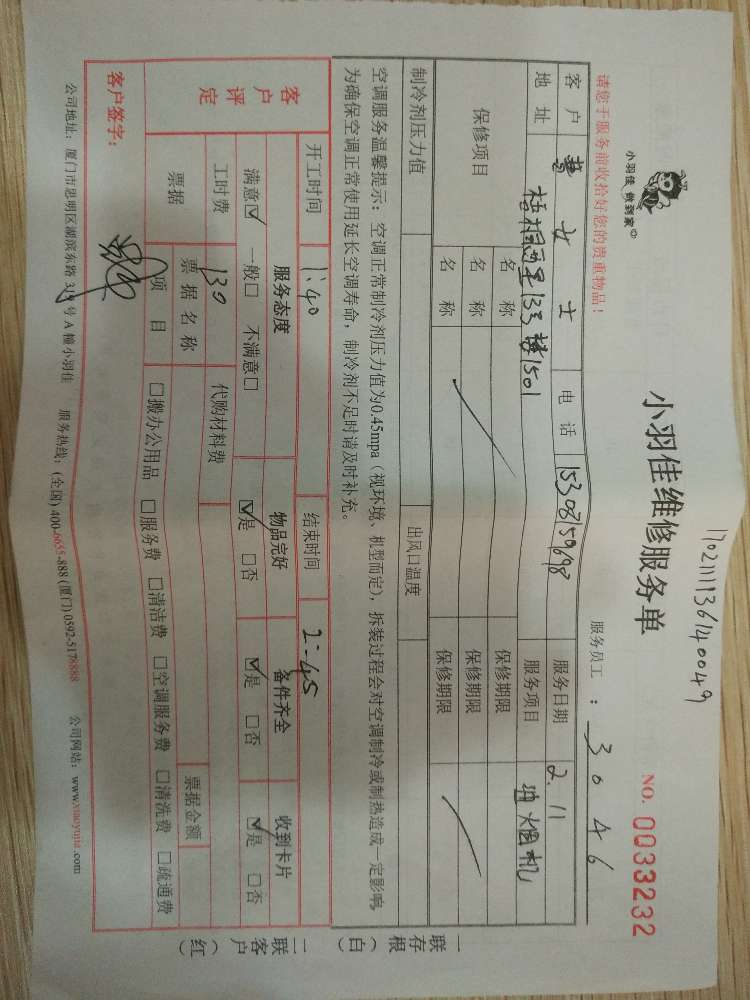 1702111136140049
小羽佳 做到家
小羽佳维修服务单
NO. 0033232
请您于服务前收拾好您的贵重物品！
服务员工：3046
客户 黄女士 电话 15308159698 服务日期 2.11
地址 梧桐西里133楼1501 服务项目 油烟机
保修项目 名称 保修期限
名称 保修期限
名称 保修期限
制冷剂压力值 出风口温度
空调服务温馨提示：空调正常制冷剂压力值为0.45mpa（视环境、机型而定），拆装过程会对空调制冷或制热造成一定影响
为确保空调正常使用延长空调寿命，制冷剂不足时请及时补充。
开工时间 1:40 结束时间 2:45
客户评定 服务态度 物品完好 备件齐全 收到卡片
满意☑ 一般□ 不满意□ ☑是 □否 ☑是 □否 ☑是 □否
工时费 130 代购材料费
票据 票据名称 票据金额
项目 □搬办公用品 □服务费 □清洁费 □空调服务费 □清洗费 □疏通费
客户签字：
公司地址：厦门市思明区湖滨东路319号A幢小羽佳 服务热线：(全国) 400-6655-888 (厦门) 0592-5178888 公司网站：www.xiaoyujia.com
一联存根（白）
二联客户（红）